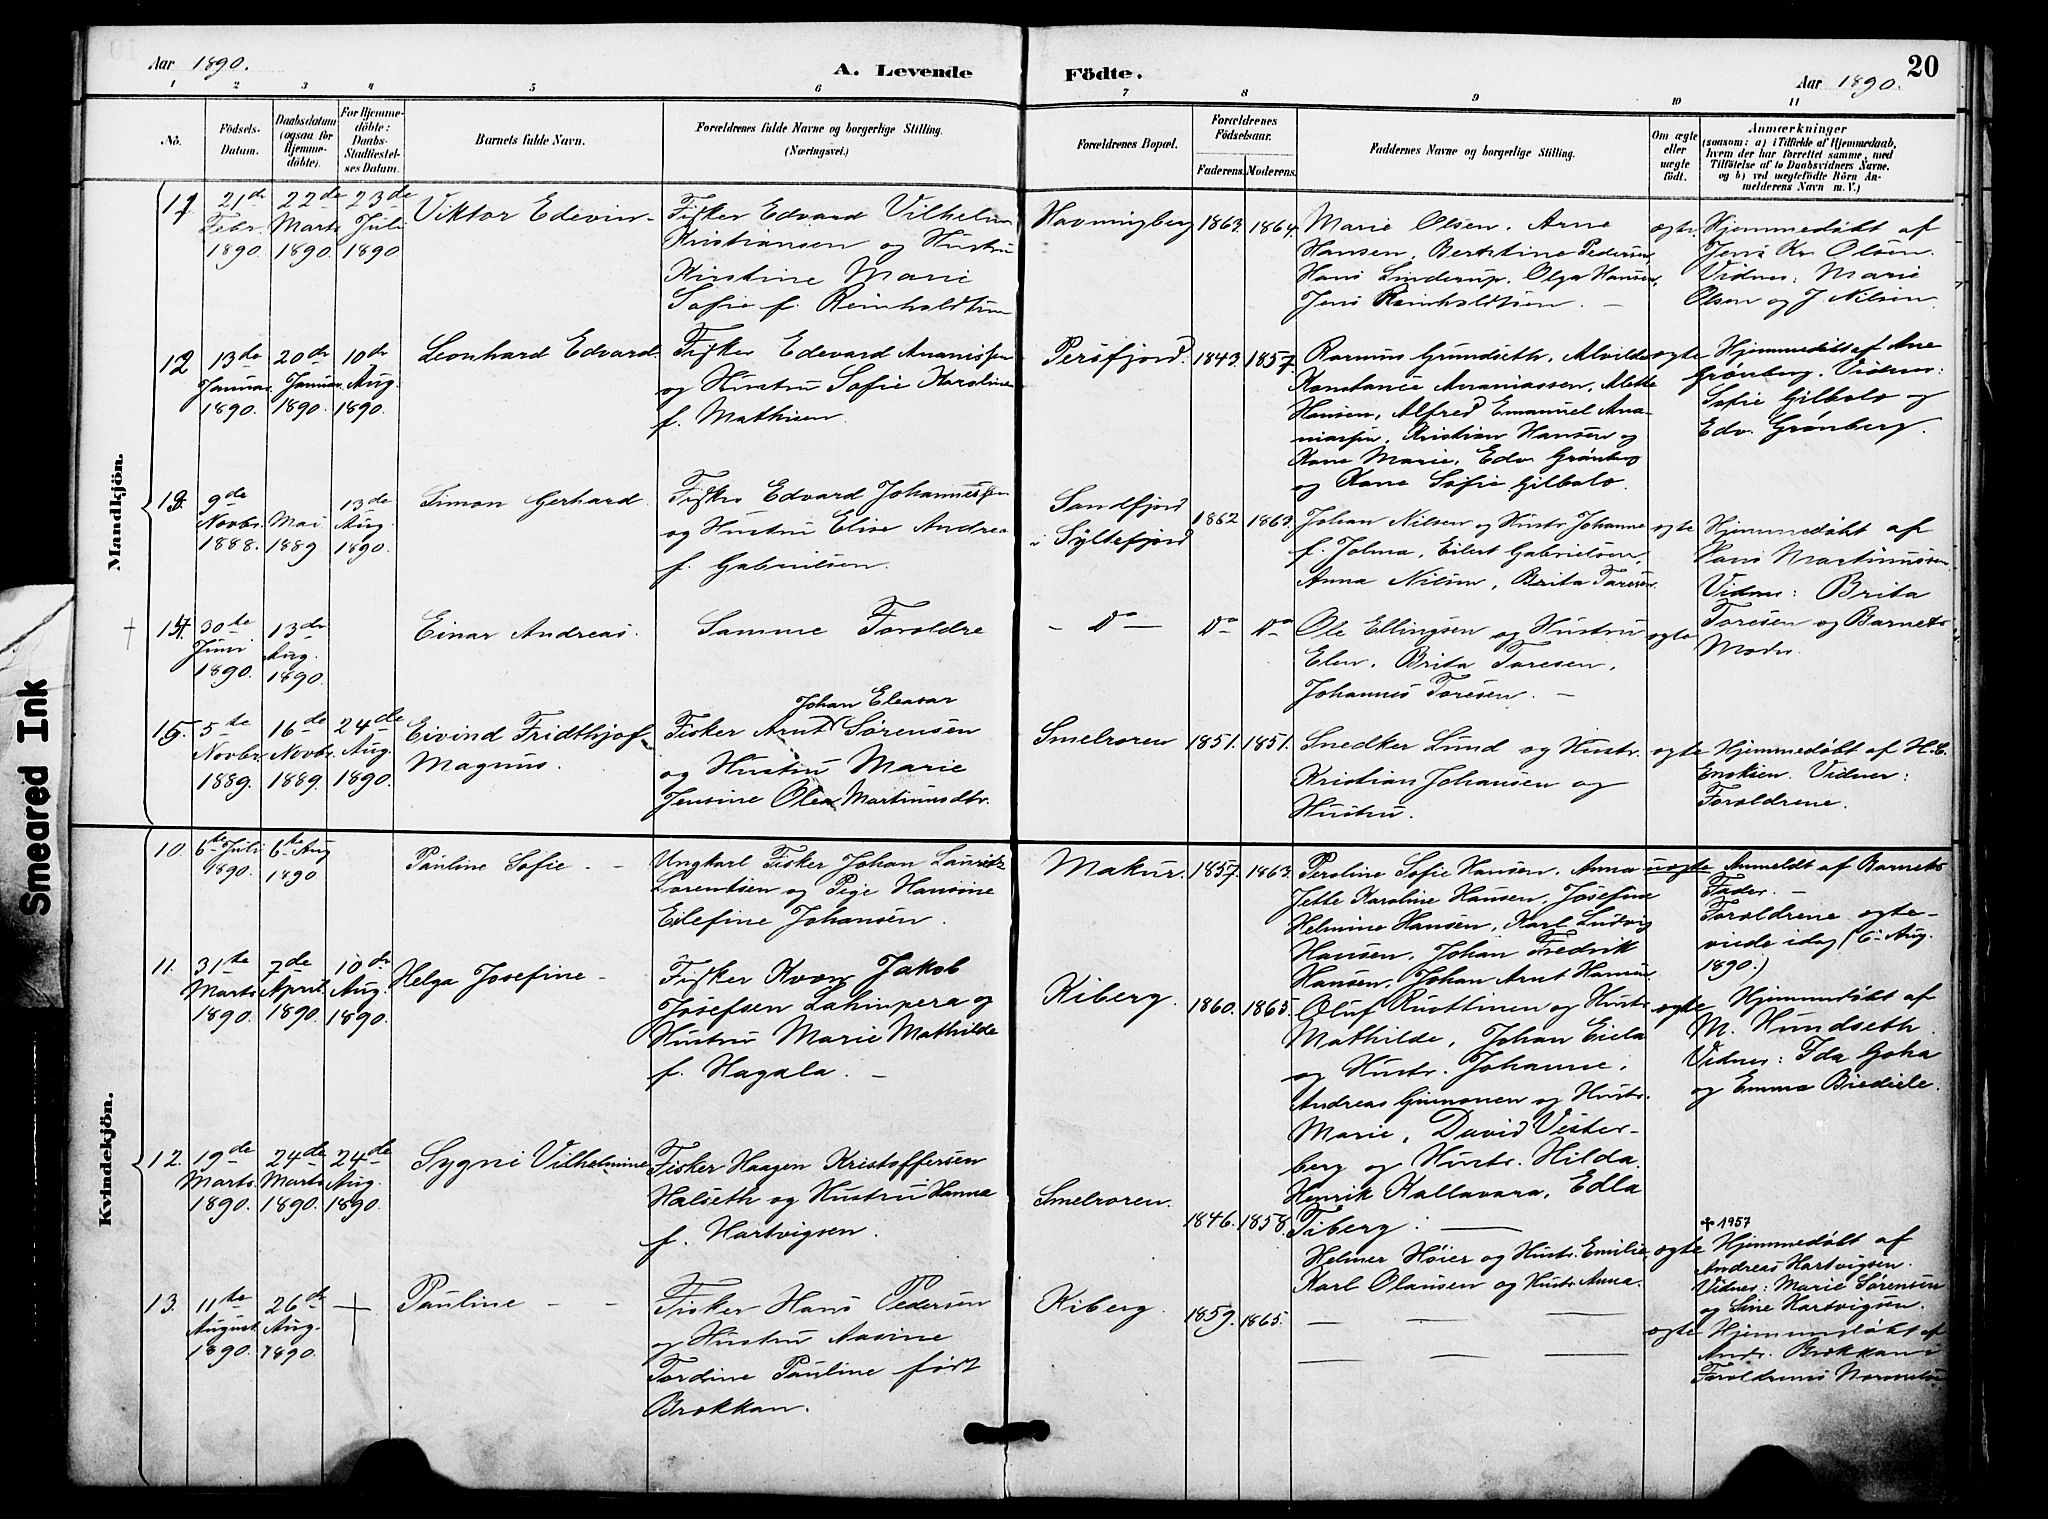 Aar 1890.
A. Levende Födte.
Aar 1890.
20
1 2 3 4 5 6 7 8 9 10 11
No.
Födsels-
Datum.
Daabsdatum
(ogsaa for
Hjemme-
döbte).
For Hjemme-
döbte:
Daabs-
Stadfæstel-
ses Datum.
Barnets fulde Navn.
Forældrenes fulde Navne og borgerlige Stilling.
(Næringsvei.)
Forældrenes Bopæl.
Forældrenes
Födselsaar.
Faderens. Moderens.
Faddernes Navne og borgerlige Stilling.
Om ægte
eller
uægte
födt.
Anmærkninger
(saasom: a) i Tilfælde af Hjemmedaab,
hvem der har forrettet samme, med
Tilföielse af to Daabsvidners Navne.
og b) ved uægtefödte Börn An-
melderens Navn m. V.)
Mandkjön.
11.
21de
Febr.
1890.
22de
Marts
1890.
23de
Juli
1890.
Viktor Edevin
Fisker Edvard Vilhelm
Kristiansen og Hustru
Kirstine Marie
Sofie f. Reinholdtsen
Havningberg
1863.
1864.
Marie Olsen, Arne
Hansen, Berntine Pedersen,
Hans Sinderup, Olga Hansen,
Jens Reinholdtsen.
ægte
Hjemmedøbt af
Jens Kr. Olsen.
Vidner: Marie
Olsen og J. Nilsen
12
13de
Januar
1890.
20de
Januar
1890.
10de
Aug.
1890.
Leonhard Edvard
Fisker Edevard Ananissen
og Hustru Sofie Karoline
f. Mathisen.
Persfjord.
1843.
1857.
Rasmus Gundseth, Alvilde
Konstance Ananiassen, Alette
Hansen, Alfred Emanuel Ana-
niassen, Kristian Hansen og
Kone Marie, Edv. Grønberg
og Kone Sofie Gilbolo.
ægte
Hjemmedøbt af Ane
Grønberg. Vidner:
Sofie Gilbolo og
Edv. Grønberg.
13.
9de
Novbr.
1888.
Mai
1889
13de
Aug.
1890.
Simon Gerhard
Fisker Edvard Johannessen
og Hustru Elise Andrea
f. Gabrielsen.
Sandfjord
i Syltefjord
1862
1863.
Johan Nilsen og Hustr. Johanne
f. Jolma, Eilert Gabrielsen,
Anna Nilsen, Brita Toresen.
ægte
Hjemmedøbt af
Hans Martinussen
Vidner: Brita
Toresen og Barnets
Moder.
† 14.
30te
Juni
1890.
13de
Aug.
1890.
Einar Andreas.
Samme Forældre
Do
Do
Do
Ole Ellingsen og Hustru
Elen, Brita Toresen,
Johannes Toresen.
ægte
15.
5te
Novbr.
1889.
16de
Novbr.
1889.
24de
Aug.
1890.
Eivind Fridthjof
Magnus.
Johan Eleasar
Fisker Arnt Sørensen
og Hustru Marie
Jensine Olea Martinusdtr.
Smelroren
1851.
1851.
Snedker Lund og Hustr.
Kristian Johansen og
Hustru.
ægte
Hjemmedøbt af H. C.
Enskien. Vidner:
Forældrene.
Kvindekjön.
10.
6te Juli
1890.
6te Aug
1890
Pauline Sofie
Ungkarl Fisker Johan Lauritz
Lorentsen og Pige Hansine
Eilefine Johansen.
Makur.
1857.
1863.
Peroline Sofie Hansen, Anna
Jette Karoline Hansen, Josefine
Helmine Hansen, Karl Ludvig
Hansen, Johan Fredrik
Hansen, Johan Arnt Hansen
uægte
Anmeldt af Barnets
Fader.
Forældrene ægte-
viede idag (6te Aug.
1890.)
11.
31te
Marts
1890.
7de
April
1890.
10de
Aug.
1890.
Helga Josefine
Fisker Kvæn Jakob
Josefsen Lahinpera og
Hustru Marie Mathilde
f. Hagala.
Kiberg.
1860.
1865.
Oluf Ruottinen og Hustr.
Mathilde, Johan Eiela
og Hustr. Johanne,
Andreas Gunnonen og Hustr.
Marie, David Vester-
berg og Hustr. Hilda.
Henrik Kallavara, Edla
Tiberg.
ægte
Hjemmedøbt af
M. Hundseth.
Vidner: Ida Goha
og Emma Biediele.
12.
19de
Marts
1890.
24de
Marts
1890.
24de
Aug.
1890.
Sygni Vilhelmine
Fisker Haagen Kristoffersen
Halseth og Hustru Hanna
f. Hartvigsen.
Smelroren.
1846.
1858.
Helmer Høier og Hustr. Emilie,
Karl Olausen og Hustr. Anna.
ægte
✝ 1957
Hjemmedøbt af
Andreas Hartvigsen.
Vidner: Marie Sørensen
og Sine Hartvigsen.
13.
11te
August
1890.
26de
Aug.
1890.
†
Pauline
Fisker Hans Pedersen
og Hustru Aasine
Tordine Pauline født
Brokkan.
Kiberg.
1859.
1865.
ægte
Hjemmedøbt af
Andr. Brokkan i
Forældrenes Nærvælse
Smeared Ink